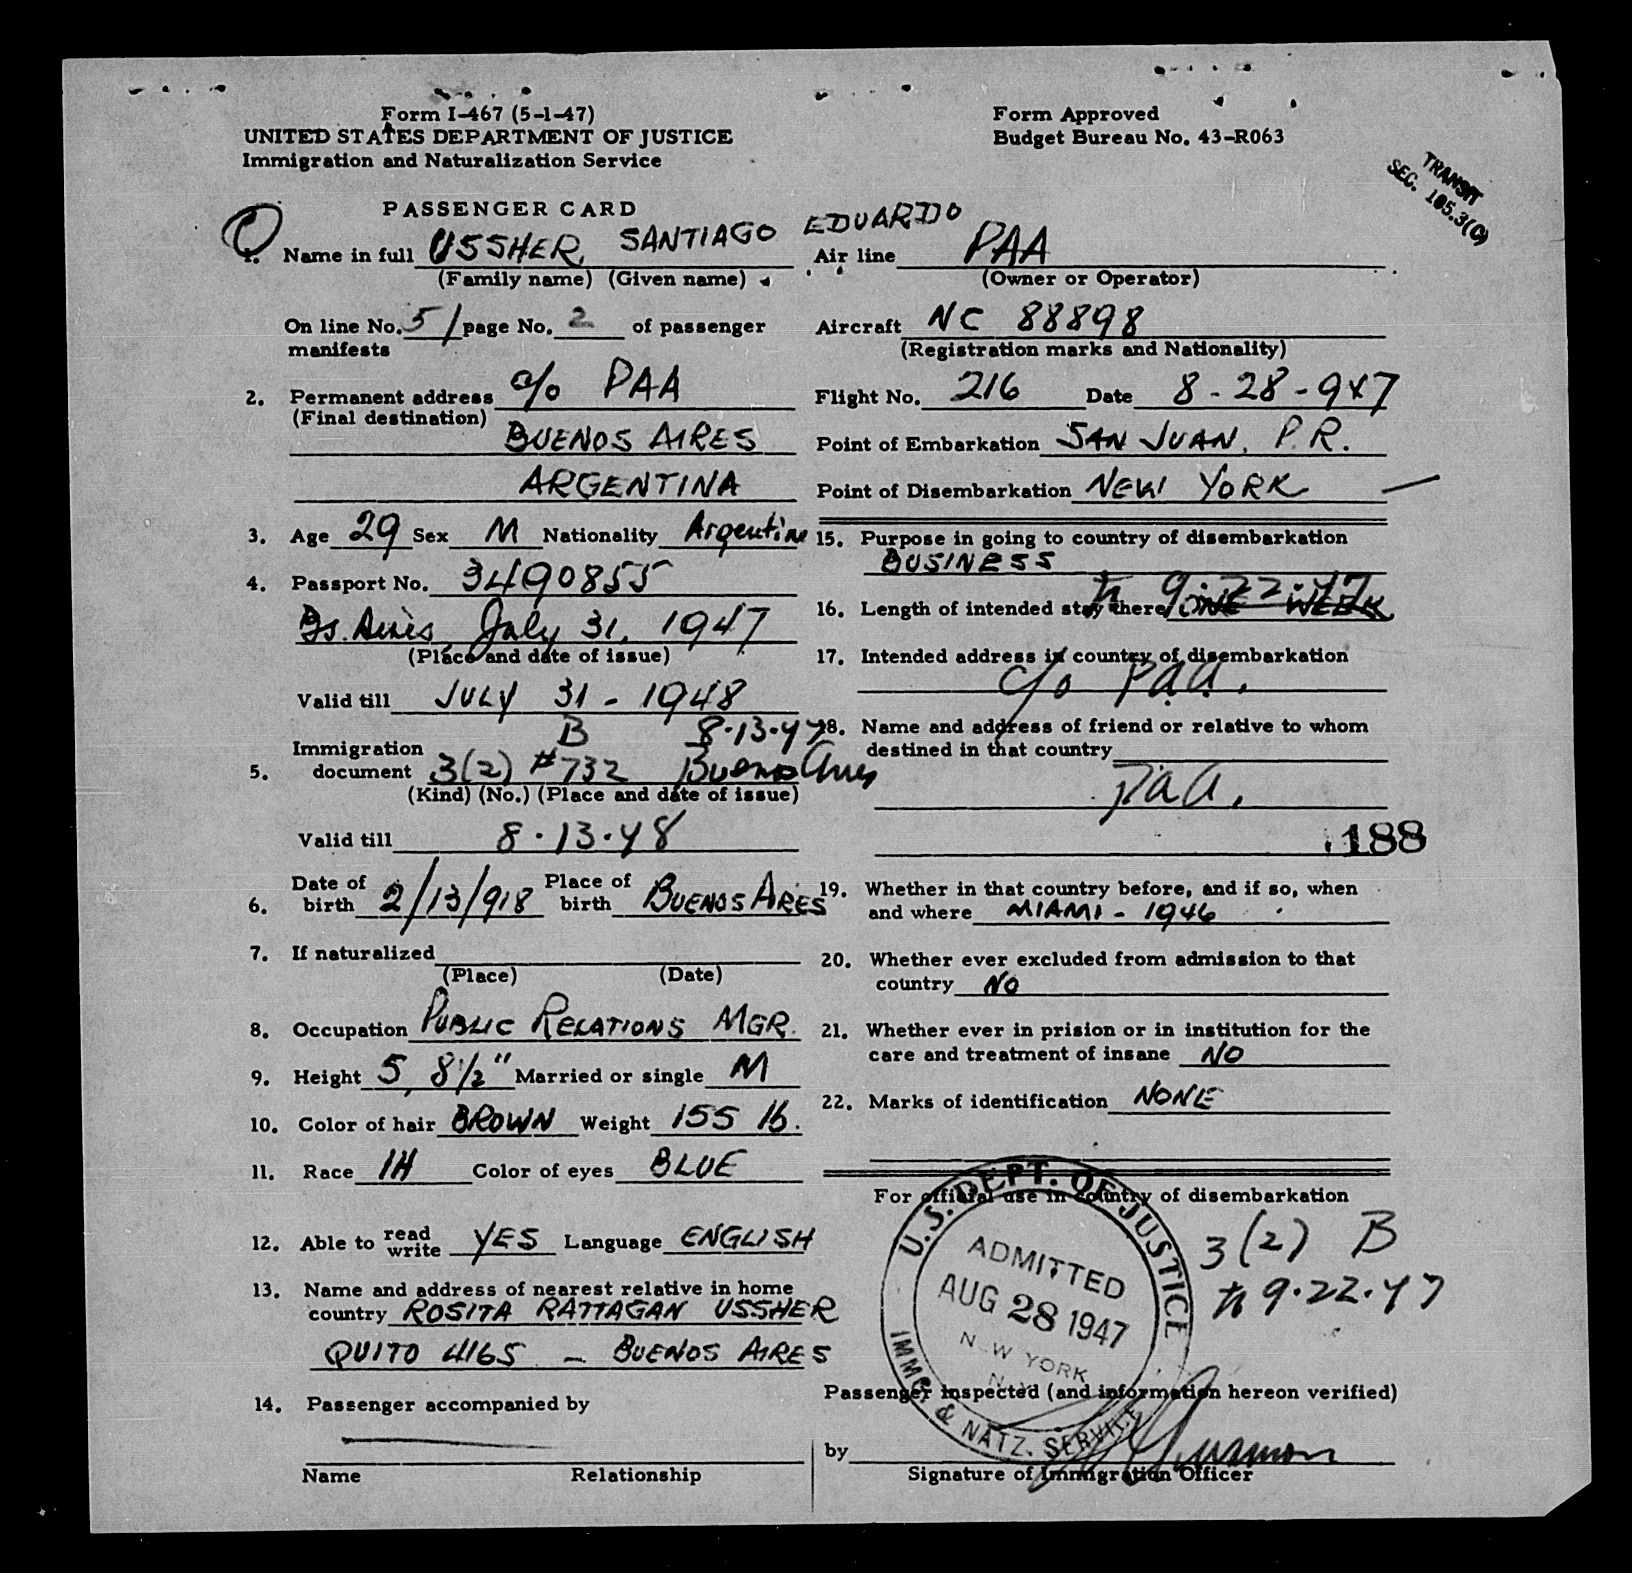 Form I-467 (5-1-47)
UNITED STATES DEPARTMENT OF JUSTICE
Immigration and Naturalization Service
Form Approved
Budget Bureau No. 43-R063
TRANSIT
SEC. 105.3(C)
PASSENGER CARD
1. Name in full USSHER, SANTIAGO EDUARDO
(Family name) (Given name)
On line No. 5 / page No. 2 of passenger
manifests
2. Permanent address c/o PAA
(Final destination)
BUENOS AIRES
ARGENTINA
3. Age 29 Sex M Nationality Argentine
4. Passport No. 3490855
Bs. Aires July 31, 1947
(Place and date of issue)
Valid till JULY 31 - 1948
B 8-13-47
Immigration
5. document 3(2) #732 Buenos Aires
(Kind) (No.) (Place and date of issue)
Valid till 8-13-48
Date of Place of
6. birth 2/13/918 birth BUENOS AIRES
7. If naturalized
(Place) (Date)
8. Occupation PUBLIC RELATIONS MGR.
9. Height 5, 8 1/2" Married or single M
10. Color of hair BROWN Weight 155 lb.
11. Race IH Color of eyes BLUE
12. Able to read write YES Language ENGLISH
13. Name and address of nearest relative in home
country ROSITA RATTAGAN USSHER
QUITO 4165 - BUENOS AIRES
14. Passenger accompanied by
Name Relationship
Air line PAA
(Owner or Operator)
Aircraft NC 88898
(Registration marks and Nationality)
Flight No. 216 Date 8-28-947
Point of Embarkation SAN JUAN, P.R.
Point of Disembarkation NEW YORK
15. Purpose in going to country of disembarkation
BUSINESS
16. Length of intended stay there ONE WEEK 9-22-47
17. Intended address in country of disembarkation
c/o PAA.
18. Name and address of friend or relative to whom
destined in that country
PAA.
188
19. Whether in that country before, and if so, when
and where MIAMI - 1946
20. Whether ever excluded from admission to that
country NO
21. Whether ever in prision or in institution for the
care and treatment of insane NO
22. Marks of identification NONE
For official use in country of disembarkation
3(2) B
9-22-47
U.S. DEPT. OF JUSTICE
ADMITTED
AUG 28 1947
N W YORK
IMMG. & NATZ. SERVICE
Passenger inspected (and information hereon verified)
by
Signature of Immigration Officer